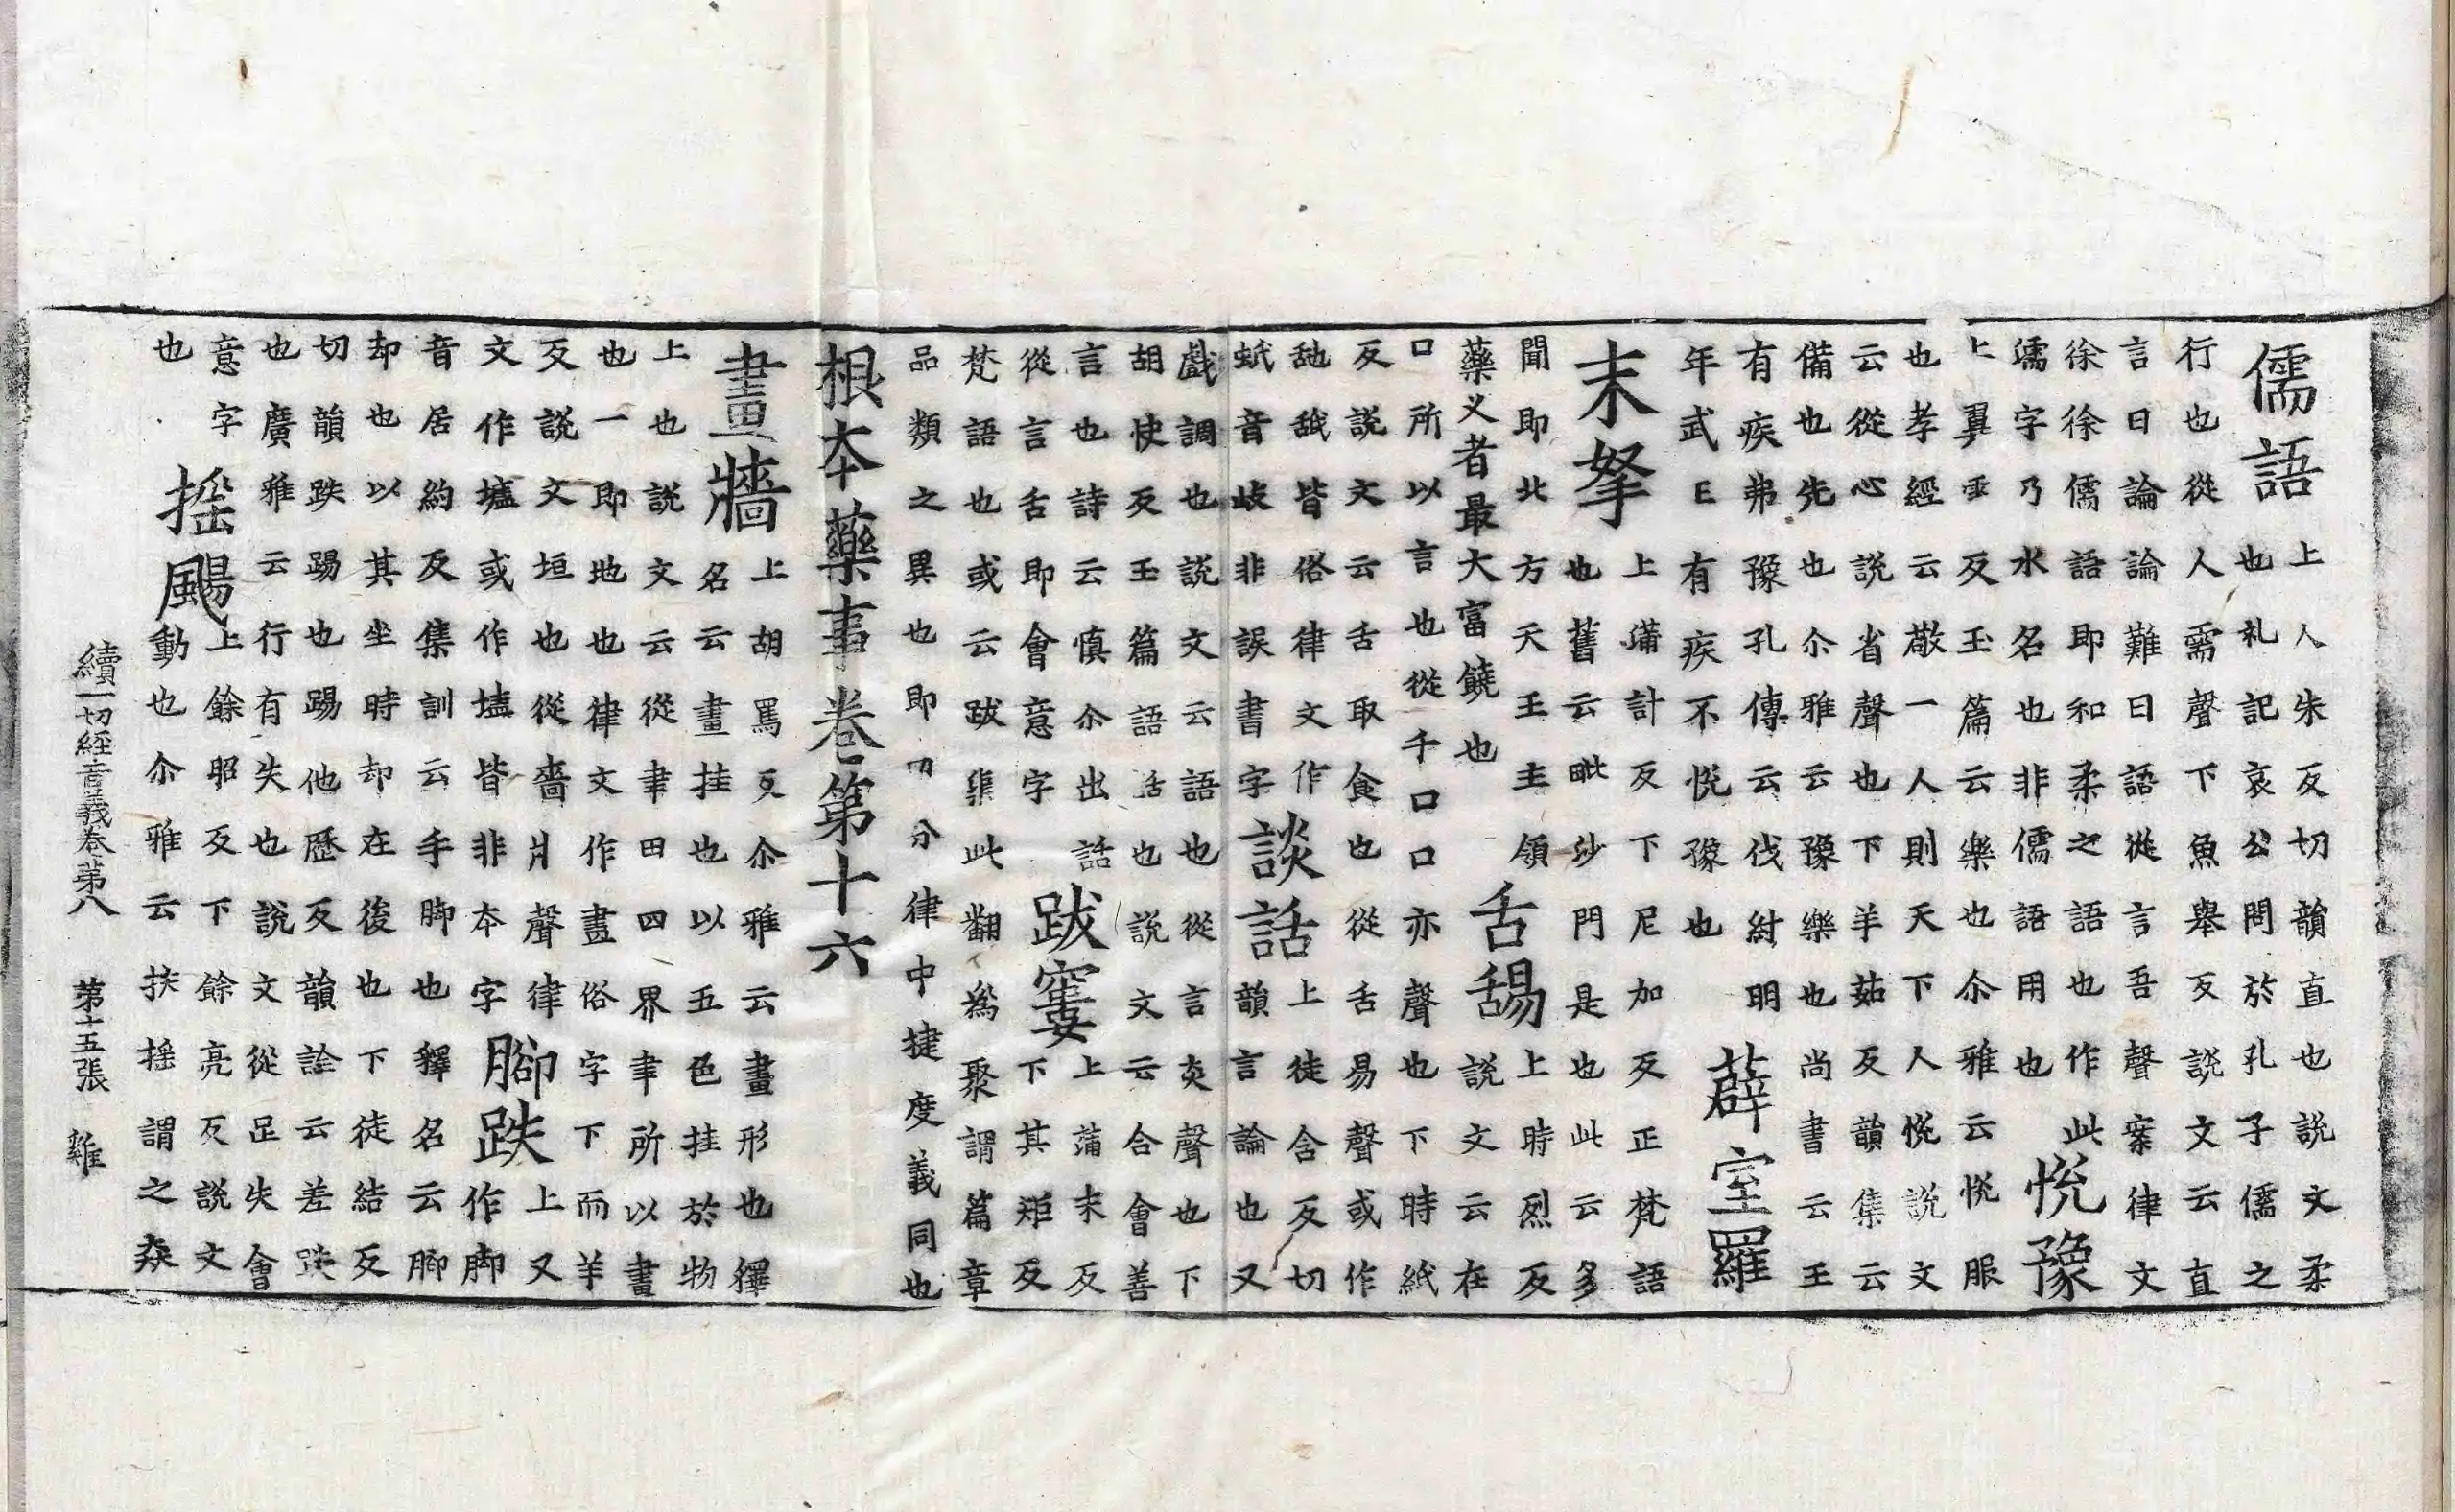 儒語
上人朱反切韻直也說文柔
也礼記哀公問於孔子儒之
行也從人需聲下魚舉反說文云直
言曰論論難曰語從言吾聲案律文
徐徐儒語即和柔之語也作此
濡字乃水名也非儒語用也
悅豫
上翼垂反玉篇云樂也尒雅云悅服
也孝經云敬一人則天下人悅說文
云從心說省聲也下羊茹反韻集云
備也先也尒雅云豫樂也尚書云王
有疾弗豫孔傳云伐紂明
年武王有疾不悅豫也
薜室羅
末拏
上蒲計反下尼加反正梵語
也舊云毗沙門是也此云多
聞即北方天王主領
藥义者最大富饒也
舌舓
上時烈反
說文云在
口所以言也從千口口亦聲也下時紙
反說文云舌取食也從舌易聲或作
舐皆俗律文作
蚔音岐非誤書字
談話
上徒含反切
韻言論也又
戲調也說文云語也從言炎聲也下
胡快反玉篇云語話也說文云合會善
言也詩云慎尒出話
從言舌即會意字
跋窶
上蒲末反
下其矩反
梵語也或云跋渠此翻為聚謂篇章
品類之異也即四分律中揵度義同也
根本藥事卷第十六
畫牆
上胡罵反尒雅云畫形也釋
名云畫挂也以五色挂於物
上也說文云從聿田四界聿所以畫
也一即地也律文作畫俗字下而羊
反說文云垣也從嗇爿聲律
文作墟或作墻皆非本字
腳跌
上又
作脚
音居約反集訓云手脚也釋名云腳
却也以其坐時却在後也下徒結反
切韻跌踢也踢他歷反韻詮云差跌
也廣雅云行有失也說文從足失會
意字
也
搖颺
上餘昭反下餘亮反說文
動也尒雅云扶搖謂之猋
續一切經音義卷第八　第十五張　雞